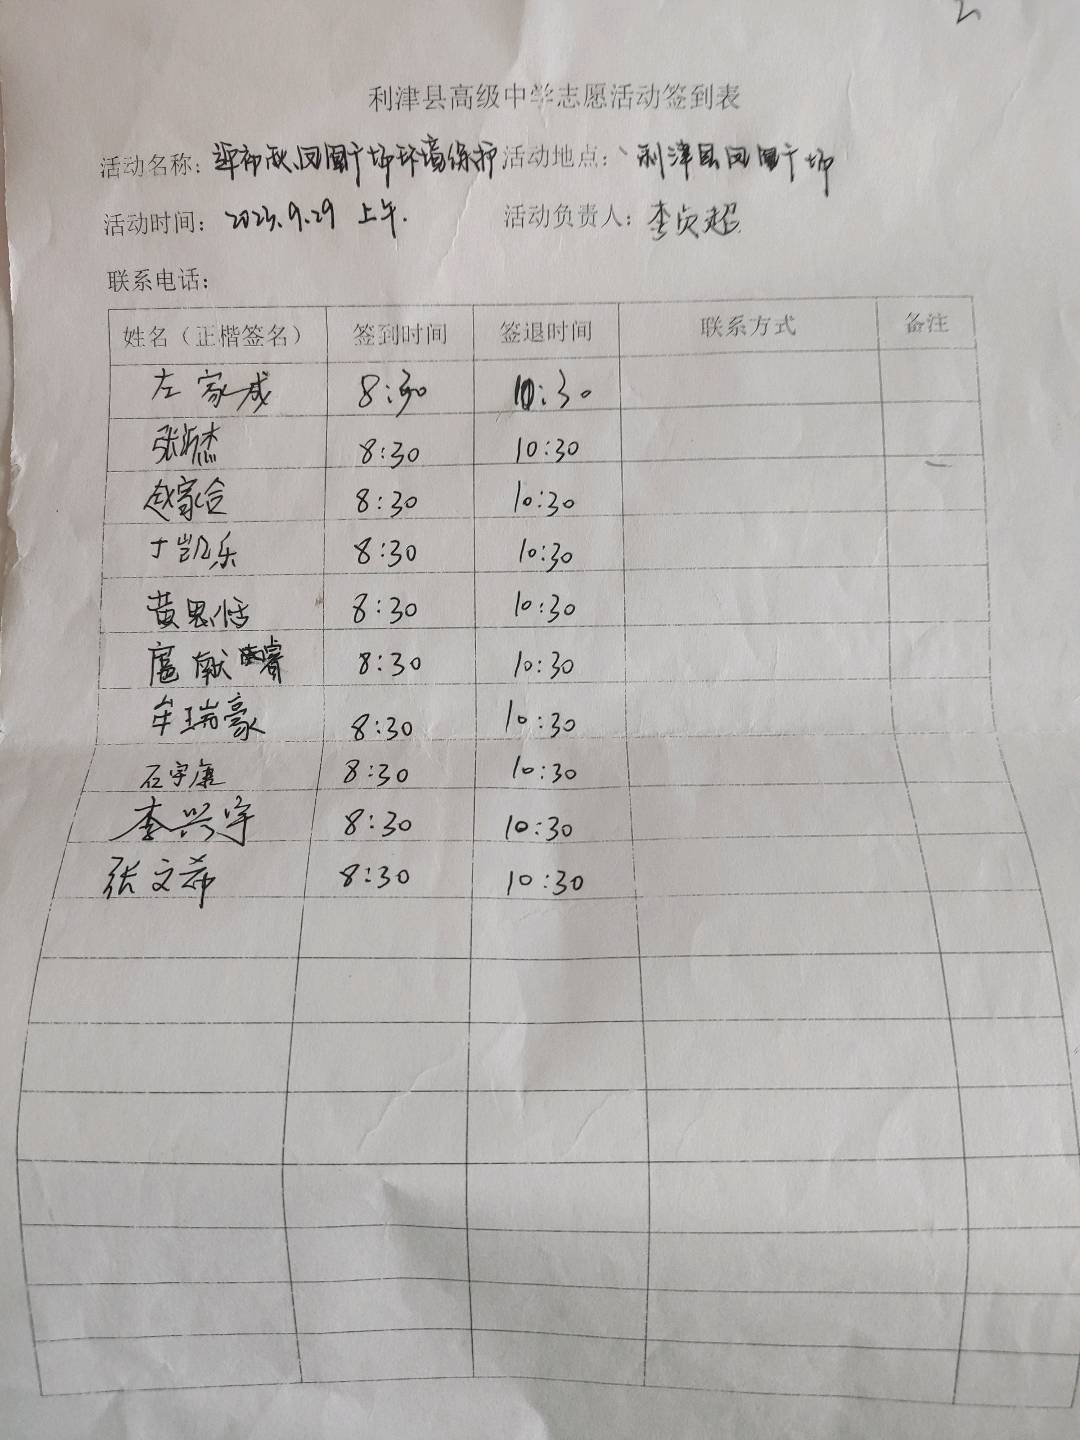 2
利津县高级中学志愿活动签到表
活动名称：迎中秋凤凰广场环境保护 活动地点：利津县凤凰广场
活动时间：2023.9.29 上午. 活动负责人：李贞超
联系电话：
姓名（正楷签名） 签到时间 签退时间 联系方式 备注
左家成 8:30 10:30
张浙杰 8:30 10:30
赵家合 8:30 10:30
丁凯乐 8:30 10:30
黄思恬 8:30 10:30
扈献睿 8:30 10:30
牟瑞豪 8:30 10:30
石宇康 8:30 10:30
李兴宇 8:30 10:30
张文希 8:30 10:30